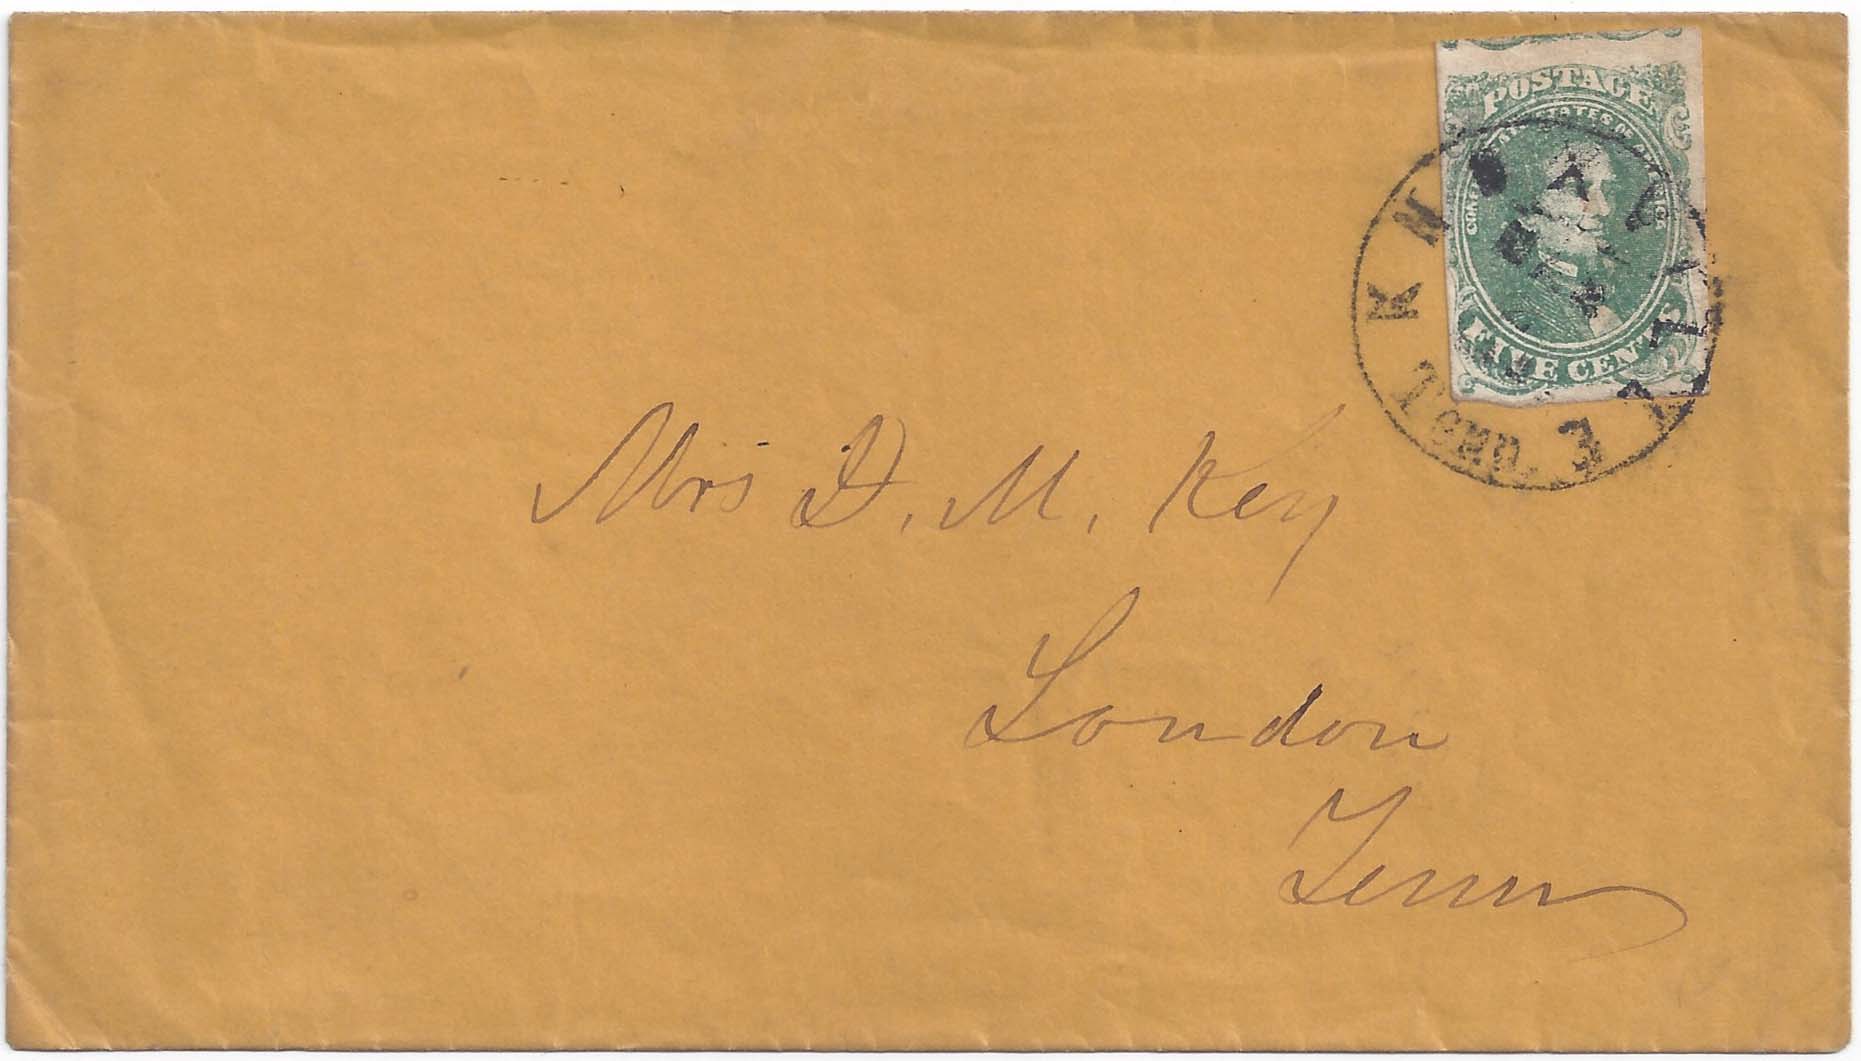 POSTAGE
CONFEDERATE STATES OF AMERICA
FIVE CENTS
KNOXVILLE
TENN.
Mrs D. M. Key
London
Tenn